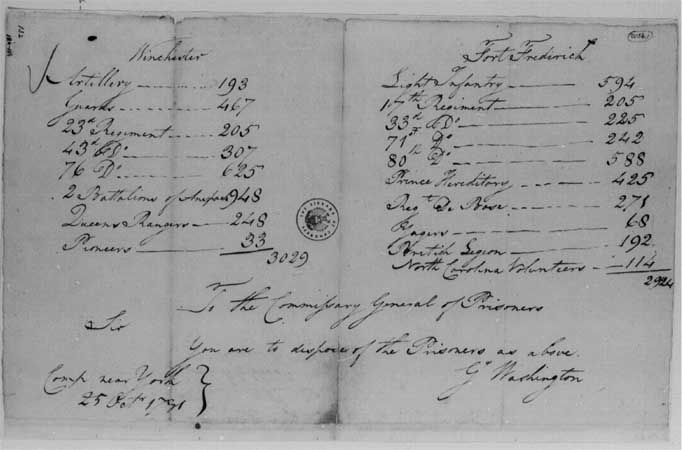 Winchester
Artillery 193
Guards 467
23d Regiment 205
43d Do 307
76 Do 625
2 Battalions of Anspach 948
Queens Rangers 248
Pioneers 33
3029
Fort Frederick
Light Infantry 594
17th Regiment 205
33d Do 225
71st Do 242
80th Do 588
Prince Hereditory 425
Regt De Bose 271
Yagers 68
British Legion 192
North Carolina Volunteers 114
2924
To the Commissary General of Prisoners
Sir
You are to dispose of the Prisoners as above.
Go Washington
Camp near York
25 Octr 1781